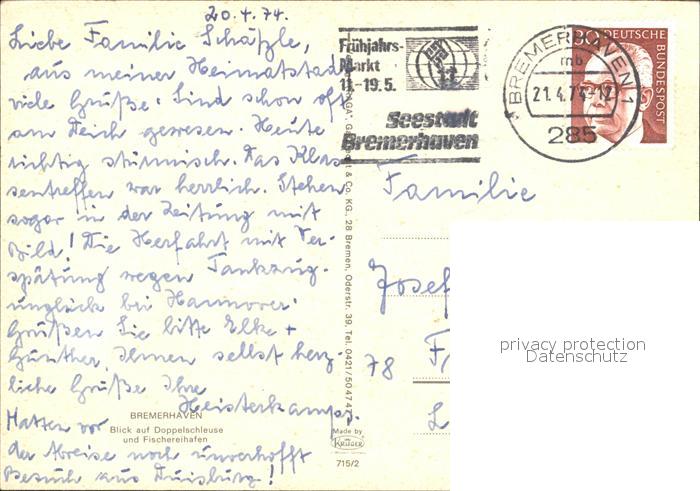 20.4.74.
Liebe Familie Schätzle,
aus meiner Heimatstadt
viele Grüße. Sind schon oft
am Deich gewesen. Heute
richtig stürmisch. Das Klas
sentreffen war herrlich. Stehen
sogar in der Zeitung mit
Bild! Die Herfahrt mit Ver-
spätung wegen Tankzug-
unglück bei Hannover.
Grüßen Sie bitte Elke +
Günther. Ihnen selbst herz-
liche Grüße Ihre
Heisterkamps.
Hatten vor
der Abreise noch unverhofft
Besuch aus Duisburg!
BREMERHAVEN
Blick auf Doppelschleuse
und Fischereihafen
& Co. KG., 28 Bremen, Oderstr. 39, Tel. 0421/504747
Made by
KRÜGER
715/2
Frühjahrs-
Markt
11.-19.5.
Seestadt
Bremerhaven
BREMERHAVEN 1
mb
21.4.74-12
285
30 DEUTSCHE
BUNDESPOST
Familie
Josef
78 F
L
privacy protection
Datenschutz